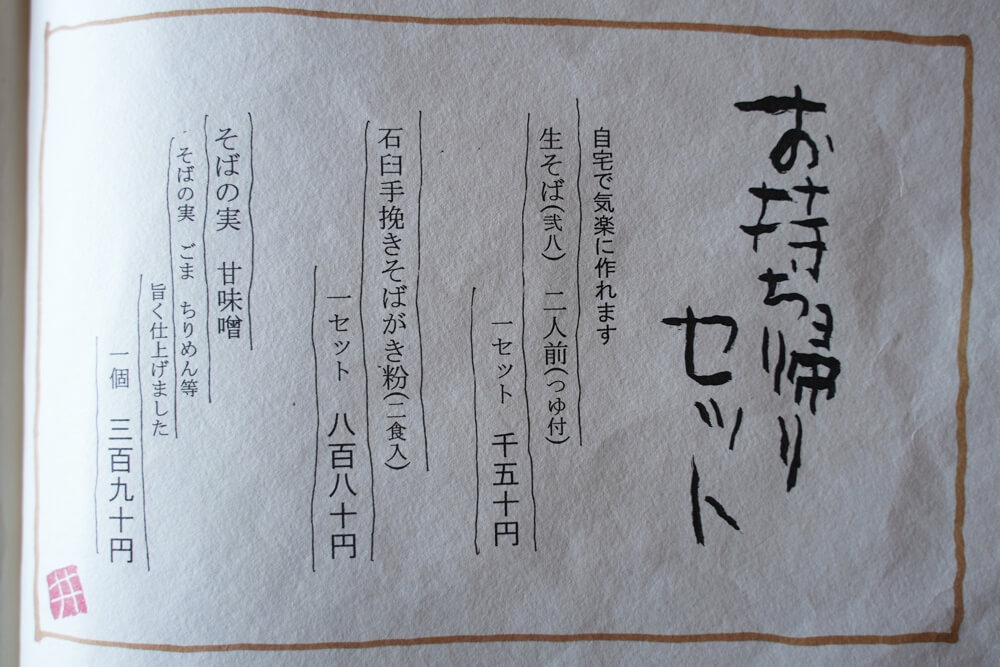 お持ち帰り
セット
自宅で気楽に作れます
生そば(弐八) 二人前(つゆ付)
一セット 千五十円
石臼手挽きそばがき粉(二食入)
一セット 八百八十円
そばの実 甘味噌
そばの実 ごま ちりめん等
旨く仕上げました
一個 三百九十円